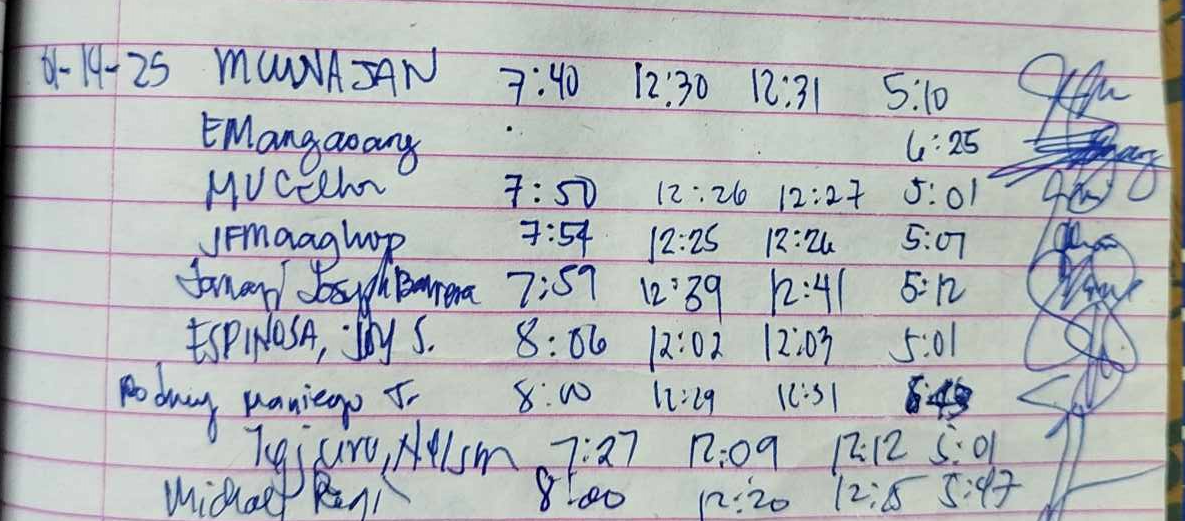 01-14-25 MUWNAJAN 7:40 12:30 12:31 5:10
EMangaoang 6:25
MVC 7:50 12:26 12:27 5:01
JFMaaghop 7:54 12:25 12:26 5:07
Joseph Barrera 7:59 12:39 12:41 5:12
ESPINOSA, JOY S. 8:06 12:02 12:03 5:01
Rodney Maniego Jr. 8:00 12:29 12:31
Nelson 7:27 12:09 12:12 5:01
Michael 8:00 12:20 12:25 5:47